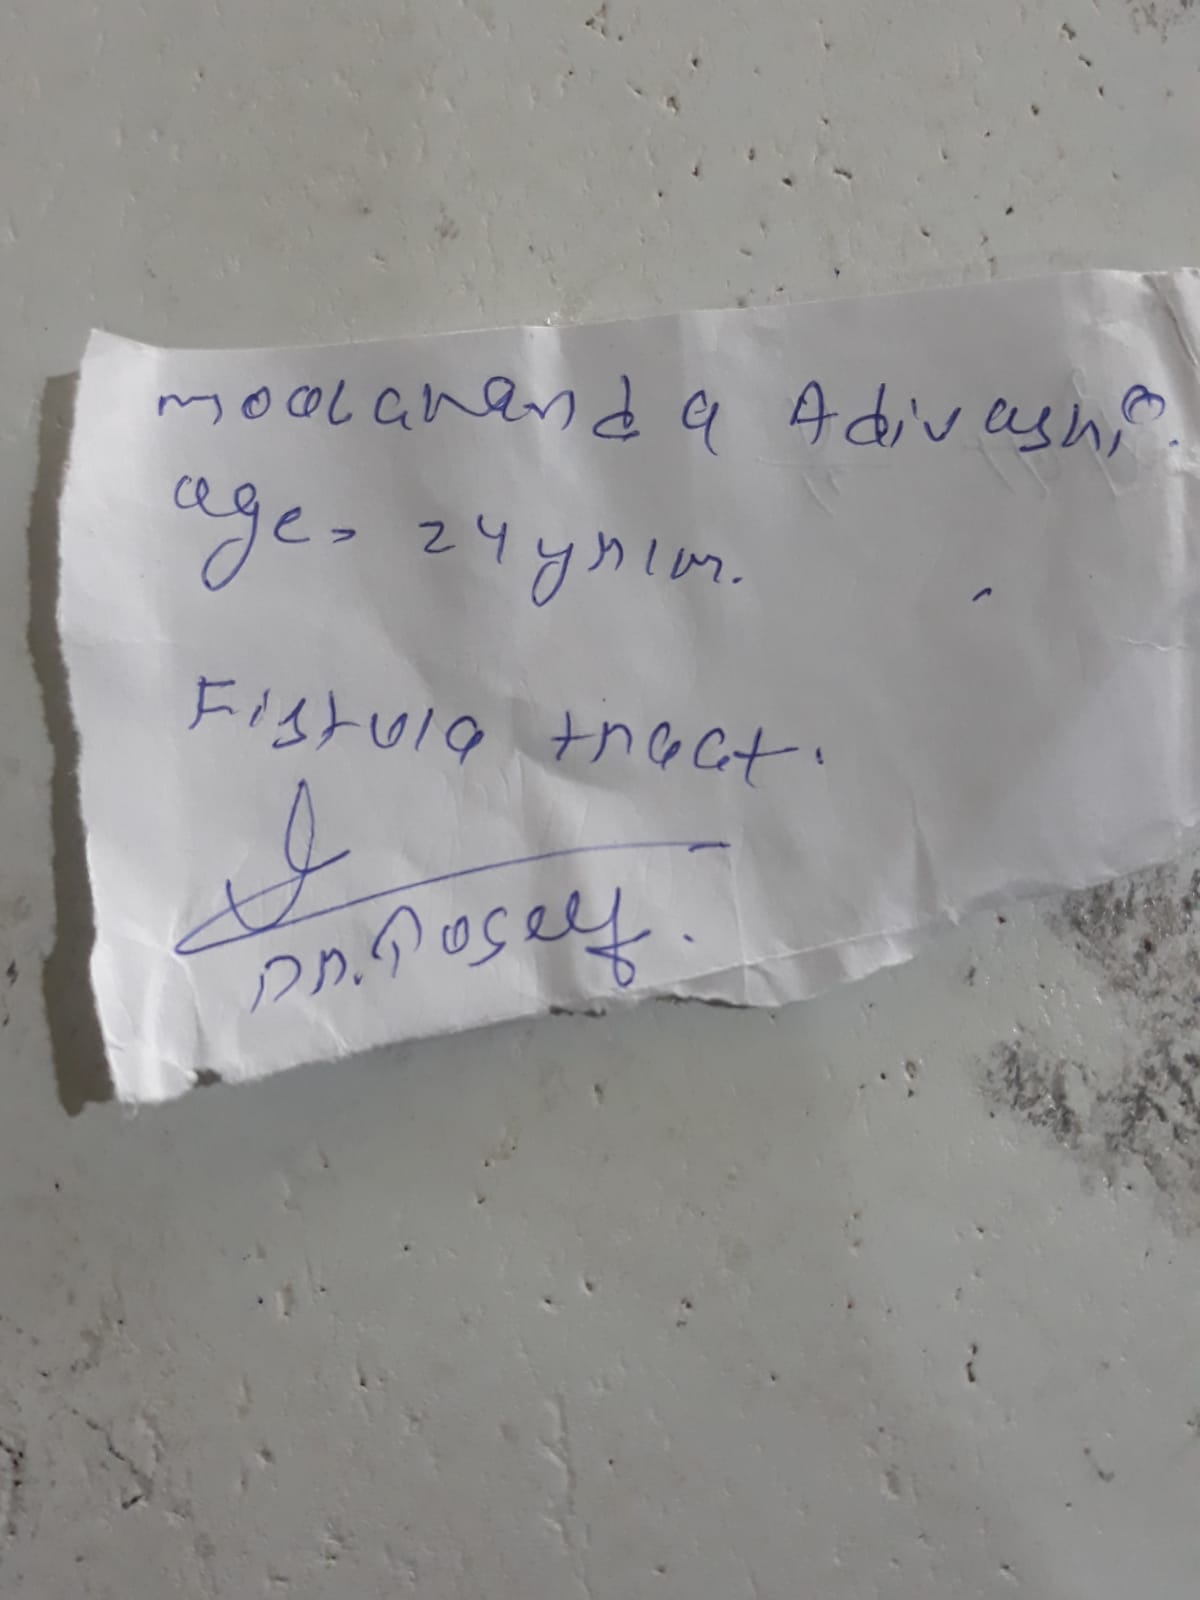 moolchand a Adivashi.
age = 24 yr/m.
Fistula tract.
Dr.